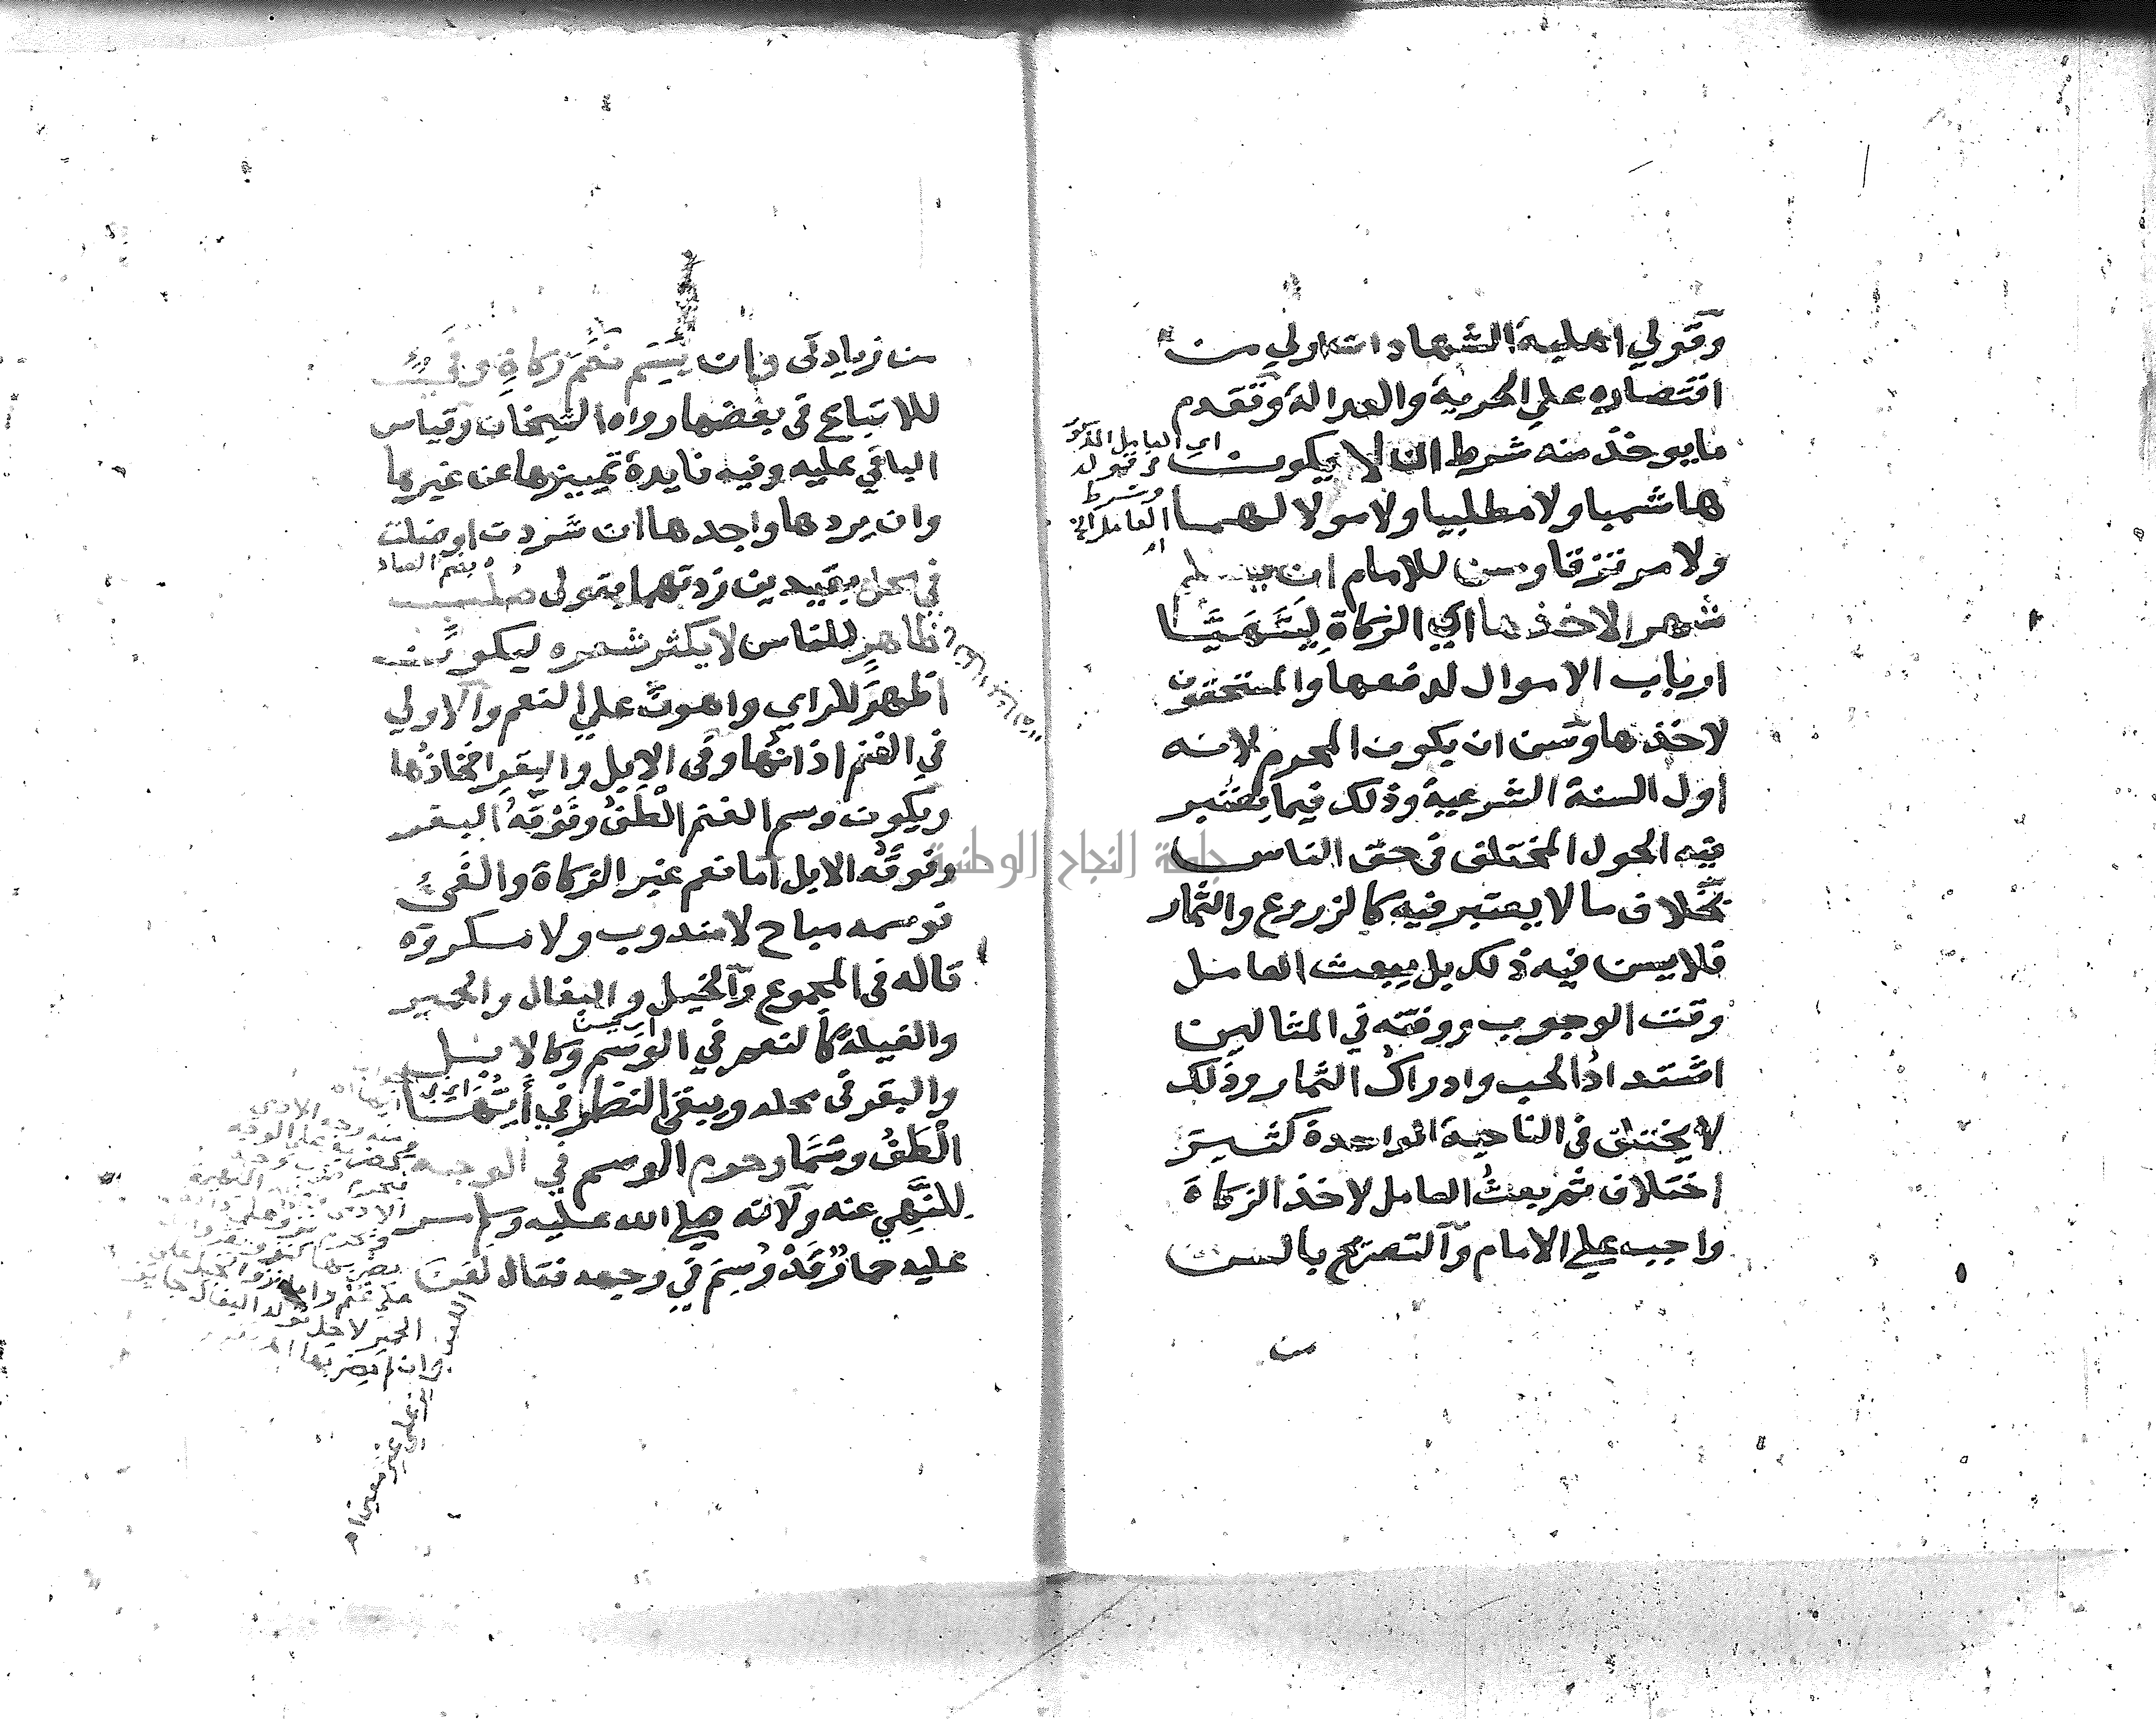 وقولي اهلية الشهادات اولي من
اقتصاره علي الحرية والعدالة وتقدم
ما يوخذ منه شرط ان لا يكون
هاشميا ولا مطلبيا ولا مولا لهما
ولا مرتزقا وسن للامام ان يعلم
شهرا لاخذها اي الزكاة ليتهيا
ارباب الاموال لدفعها والمستحقون
لاخذها وسن ان يكون المحرم لانه
اول السنة الشرعية وذلك فيما يعتبر
فيه الحول المختلف في حق الناس
بخلاف ما لا يعتبر فيه كالزروع والثمار
فلا يسن فيه ذلك بل يبعث العامل
وقت الوجوب ووقته في المثالين
اشتداد الحب وادراك الثمار وذلك
لا يختلف في الناحية الواحدة كثير
اختلاف ثم بعث العامل لاخذ الزكاة
واجب علي الامام والتصريح بالسن
من
اي العامل
وشرط
العامل الخ
من زيادتي وان يَسِمَ نَعَمَ زكاةٍ وفيءٍ
للاتباع في بعضها رواه الشيخان وقياس
الباقي عليه وفيه فايدة تمييزها عن غيرها
وان يردها واجدها ان شردت او ضلت
في محل بقيدين زدتهما بقولي صُلب
بضم الصاد
ظاهرٍ للناس لا يكثر شعره ليكون
اظهر للراي واهون علي النعم والاولي
في الغنم اذانها وفي الابل والبقر افخاذها
ويكون وسم الغنم الطف وفوقه البقر
وفوقه الابل اما نعم غير الزكاة والفيء
فوسمه مباح لا مندوب ولا مكروه
قاله في المجموع والخيل والبغال والحمير
والفيلة كالنعم في الوسم وكالابل
والبقر في محله ويبقى النظر في أيُّها
الطفُ وحرم الوسم في الوجه
للنهي عنه ولانه صلي الله عليه وسلم مر
عليه حمارٌ قَدْ وُسِمَ في وجهه فقال لعن
الحمير لاجل تولد البغال
وان لم يضر بها
علي غير معين اه